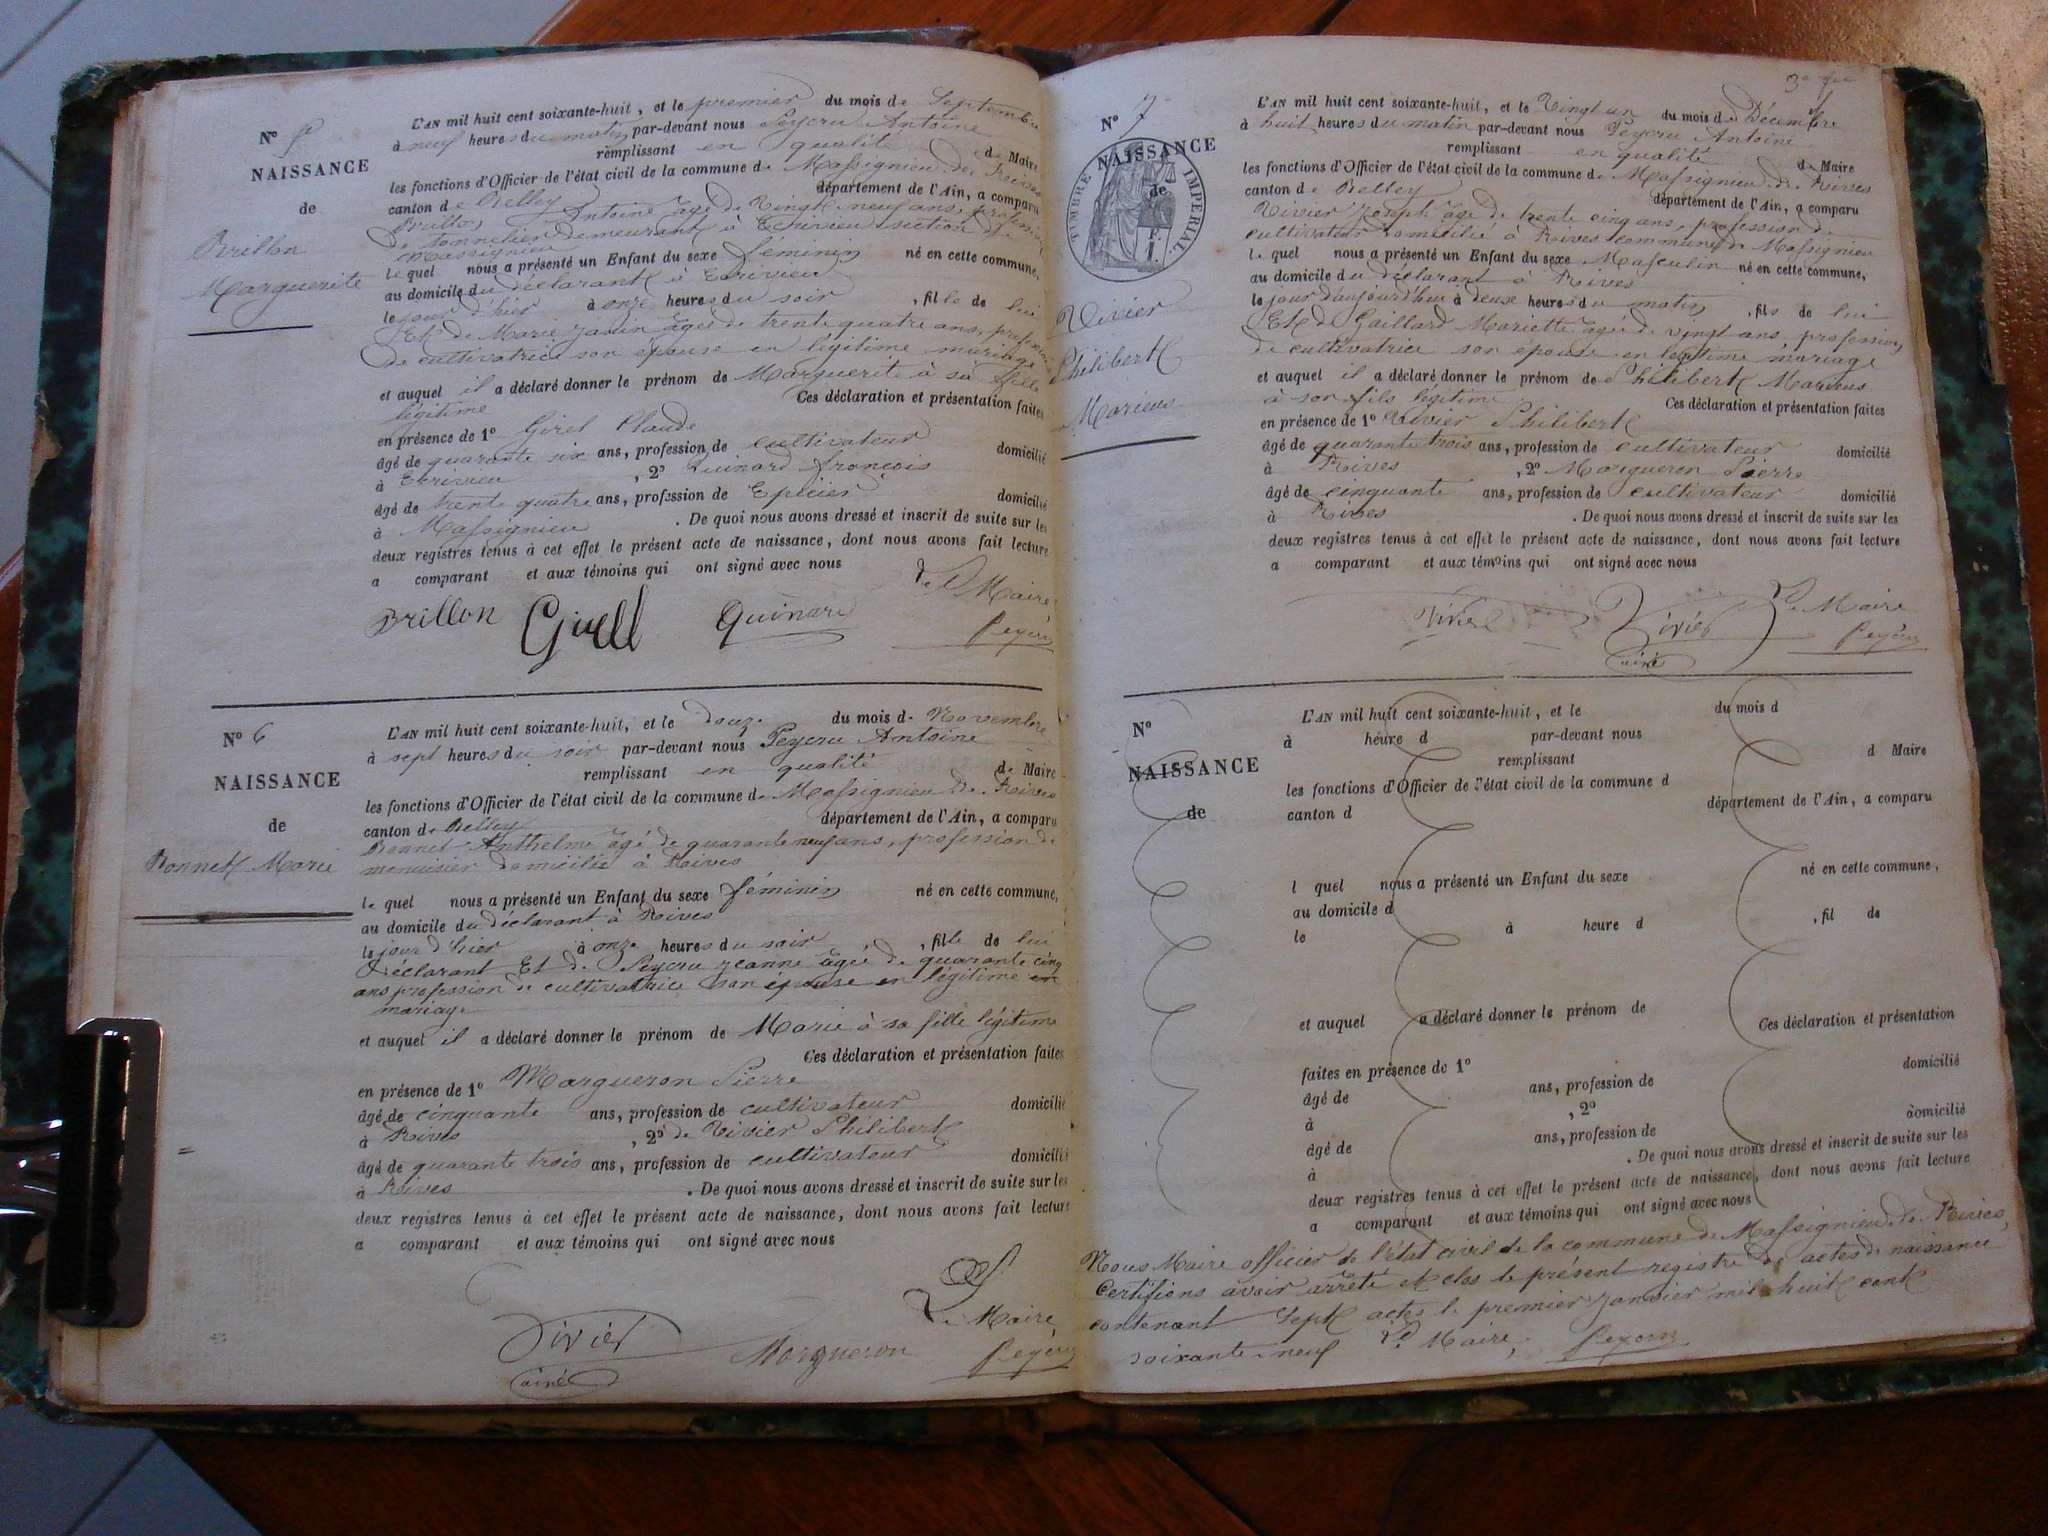 N° 5
NAISSANCE
de
Brillon
Marguerite
L'AN mil huit cent soixante-huit, et le premier du mois de Septembre
à neuf heures du matin par-devant nous Peycru Antoine
remplissant en qualité de Maire
les fonctions d'Officier de l'état civil de la commune de Massignieu de Rives
canton de Belley département de l'Ain, a comparu
Brillon Antoine âgé de Vingt neuf ans, profession
de tonnelier demeurant à Ecrivieu section de
Massignieu
lequel nous a présenté un Enfant du sexe féminin né en cette commune,
au domicile du déclarant à Ecrivieu
le jour d'hier à onze heures du soir, fille de lui
Et de Marie Jantin âgée de trente quatre ans, profession
de cultivatrice son épouse en légitime mariage
et auquel il a déclaré donner le prénom de Marguerite à sa fille
légitime Ces déclaration et présentation faites
en présence de 1° Girel Claude
âgé de quarante six ans, profession de cultivateur domicilié
à Ecrivieu, 2° Quinard françois
âgé de trente quatre ans, profession de Epicier domicilié
à Massignieu. De quoi nous avons dressé et inscrit de suite sur les
deux registres tenus à cet effet le présent acte de naissance, dont nous avons fait lecture
a comparant et aux témoins qui ont signé avec nous
Le Maire
Brillon Girell Quinard Peycru
N° 6
NAISSANCE
de
Bonnet Marie
L'AN mil huit cent soixante-huit, et le douze du mois de Novembre
à sept heures du soir par-devant nous Peycru Antoine
remplissant en qualité de Maire
les fonctions d'Officier de l'état civil de la commune de Massignieu de Rives
canton de Belley département de l'Ain, a comparu
Bonnet Anthelme âgé de quarante neuf ans, profession de
menuisier domicilié à Rives
lequel nous a présenté un Enfant du sexe féminin né en cette commune,
au domicile du déclarant à Rives
le jour d'hier à onze heures du soir, fille de lui
déclarant Et de Peycru Jeanne âgée de quarante cinq
ans profession de cultivatrice son épouse en légitime en
mariage
et auquel il a déclaré donner le prénom de Marie à sa fille légitime
Ces déclaration et présentation faites
en présence de 1° Margueron Pierre
âgé de cinquante ans, profession de cultivateur domicilié
à Rives, 2° de Vivier Philibert
âgé de quarante trois ans, profession de cultivateur domicilié
à Rives. De quoi nous avons dressé et inscrit de suite sur les
deux registres tenus à cet effet le présent acte de naissance, dont nous avons fait lecture
a comparant et aux témoins qui ont signé avec nous
Le Maire
Vivier Margueron Peycru
ainé
3e fet
N° 7
NAISSANCE
de
TIMBRE IMPERIAL
Vivier
Philibert
Marieus
L'AN mil huit cent soixante-huit, et le Vingt un du mois de Décembre
à huit heures du matin par-devant nous Peycru Antoine
remplissant en qualité de Maire
les fonctions d'Officier de l'état civil de la commune de Massignieu de Rives
canton de Belley département de l'Ain, a comparu
Vivier Joseph âgé de trente cinq ans, profession de
cultivateur domicilié à Rives commune de Massignieu
lequel nous a présenté un Enfant du sexe Masculin né en cette commune,
au domicile du déclarant à Rives
le jour d'aujourd'hui à deux heures du matin, fils de lui
Et de Gaillard Mariette âgée de vingt ans, profession
de cultivatrice son épouse en légitime mariage
et auquel il a déclaré donner le prénom de Philibert Marieus
à son fils légitime Ces déclaration et présentation faites
en présence de 1° Vivier Philibert
âgé de quarante trois ans, profession de cultivateur domicilié
à Rives, 2° Margueron Pierre
âgé de cinquante ans, profession de cultivateur domicilié
à Rives. De quoi nous avons dressé et inscrit de suite sur les
deux registres tenus à cet effet le présent acte de naissance, dont nous avons fait lecture
a comparant et aux témoins qui ont signé avec nous
Le Maire
Vivier Vivier Peycru
ainé
N°
NAISSANCE
de
L'AN mil huit cent soixante-huit, et le du mois d
à heure d par-devant nous
remplissant d Maire
les fonctions d'Officier de l'état civil de la commune d
canton d département de l'Ain, a comparu
l quel nous a présenté un Enfant du sexe né en cette commune,
au domicile d
le à heure d, fil de
et auquel a déclaré donner le prénom de
Ces déclaration et présentation
faites en présence de 1°
âgé de ans, profession de domicilié
à, 2°
âgé de ans, profession de domicilié
à. De quoi nous avons dressé et inscrit de suite sur les
deux registres tenus à cet effet le présent acte de naissance, dont nous avons fait lecture
a comparant et aux témoins qui ont signé avec nous
Nous Maire officier de l'état civil de la commune de Massignieu de Rives,
Certifions avoir arrêté et clos le présent registre des actes de naissance
contenant Sept actes le premier janvier mil huit cent
soixante-neuf Le Maire, Peycru